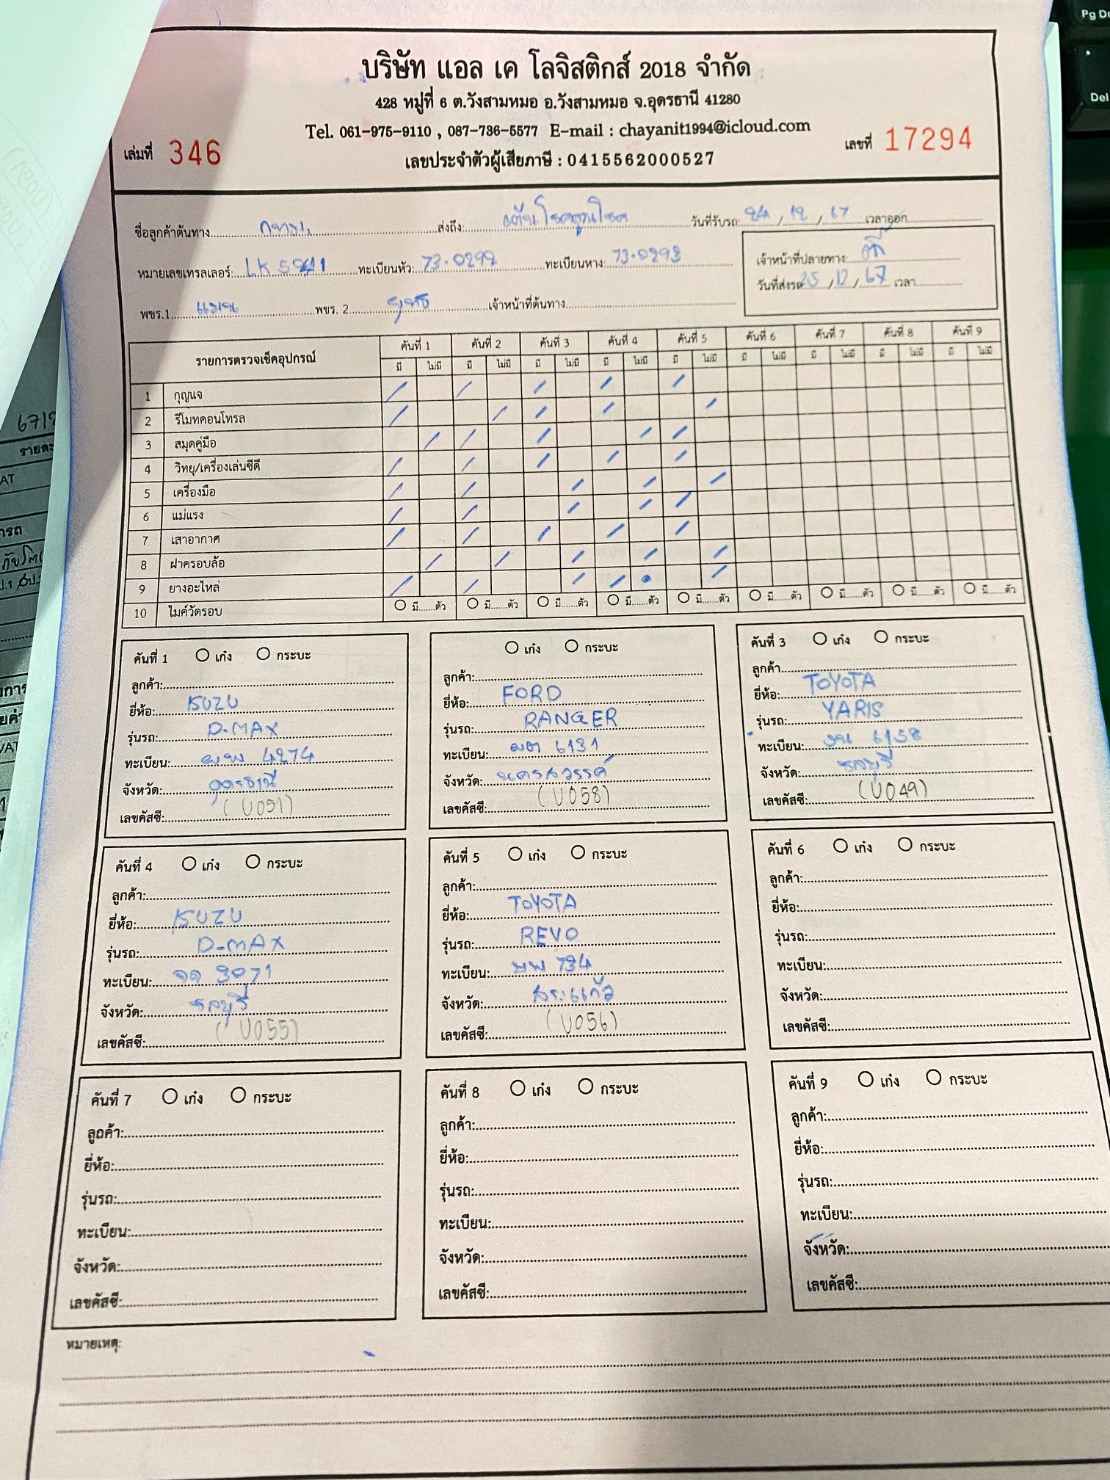 บริษัท แอล เค โลจิสติกส์ 2018 จำกัด
428 หมู่ที่ 6 ต.วังสามหมอ อ.วังสามหมอ จ.อุดรธานี 41280
Tel. 061-975-9110 , 087-736-5577 E-mail : chayanit1994@icloud.com
เล่มที่ 346 เลขที่ 17294
เลขประจำตัวผู้เสียภาษี : 0415562000527
ชื่อลูกค้าต้นทาง ส่งถึง: วันที่รับรถ: 24 / 12 / 67 เวลาออก
หมายเลขเทรลเลอร์: ทะเบียนหัว: 73-0292 ทะเบียนหาง: 73-0293
เจ้าหน้าที่ปลายทาง:
วันที่ส่งรถ 25 / 12 / 67 เวลา
พขร.1 พขร. 2 เจ้าหน้าที่ต้นทาง
รายการตรวจเช็คอุปกรณ์ คันที่ 1 คันที่ 2 คันที่ 3 คันที่ 4 คันที่ 5 คันที่ 6 คันที่ 7 คันที่ 8 คันที่ 9
มี ไม่มี มี ไม่มี มี ไม่มี มี ไม่มี มี ไม่มี มี ไม่มี มี ไม่มี มี ไม่มี มี ไม่มี
1 กุญแจ / / / / /
2 รีโมทคอนโทรล / / / / /
3 สมุดคู่มือ / / / / /
4 วิทยุ/เครื่องเล่นซีดี / / / / /
5 เครื่องมือ / / / / /
6 แม่แรง / / / / /
7 เสาอากาศ / / / / /
8 ฝาครอบล้อ / / / / /
9 ยางอะไหล่ / / / / /
10 ไมค์วัดรอบ มี......ตัว มี......ตัว มี......ตัว มี......ตัว มี......ตัว มี......ตัว มี......ตัว มี......ตัว มี......ตัว
คันที่ 1 เก๋ง กระบะ
ลูกค้า:
ยี่ห้อ: ISUZU
รุ่นรถ: D-MAX
ทะเบียน: 4274
จังหวัด: อุดรธานี
(U051)
เลขคัสซี:
เก๋ง กระบะ
ลูกค้า:
ยี่ห้อ: FORD
รุ่นรถ: RANGER
ทะเบียน: 6131
จังหวัด: นครสวรรค์
(U058)
เลขคัสซี:
คันที่ 3 เก๋ง กระบะ
ลูกค้า:
ยี่ห้อ: TOYOTA
รุ่นรถ: YARIS
ทะเบียน: 6158
จังหวัด: ชลบุรี
เลขคัสซี: (U049)
คันที่ 4 เก๋ง กระบะ
ลูกค้า:
ยี่ห้อ: ISUZU
รุ่นรถ: D-MAX
ทะเบียน: 3071
จังหวัด: ชลบุรี
เลขคัสซี: (U055)
คันที่ 5 เก๋ง กระบะ
ลูกค้า:
ยี่ห้อ: TOYOTA
รุ่นรถ: REVO
ทะเบียน: 734
จังหวัด: สระแก้ว
เลขคัสซี: (U056)
คันที่ 6 เก๋ง กระบะ
ลูกค้า:
ยี่ห้อ:
รุ่นรถ:
ทะเบียน:
จังหวัด:
เลขคัสซี:
คันที่ 7 เก๋ง กระบะ
ลูกค้า:
ยี่ห้อ:
รุ่นรถ:
ทะเบียน:
จังหวัด:
เลขคัสซี:
คันที่ 8 เก๋ง กระบะ
ลูกค้า:
ยี่ห้อ:
รุ่นรถ:
ทะเบียน:
จังหวัด:
เลขคัสซี:
คันที่ 9 เก๋ง กระบะ
ลูกค้า:
ยี่ห้อ:
รุ่นรถ:
ทะเบียน:
จังหวัด:
เลขคัสซี:
หมายเหตุ: